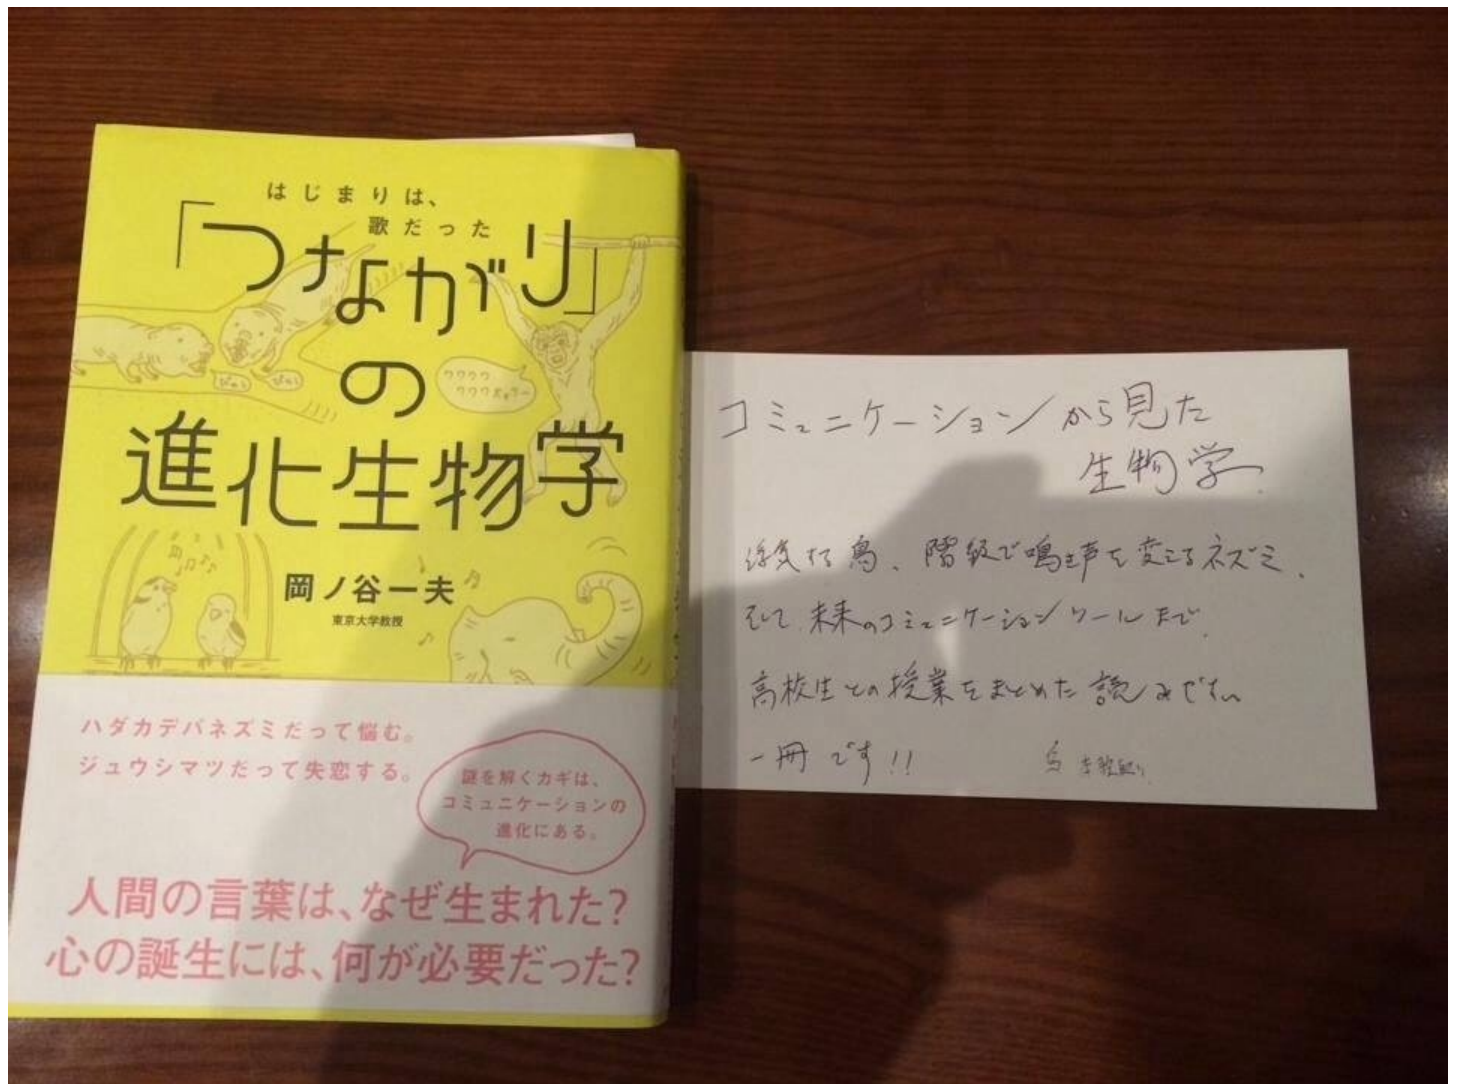 はじまりは、
歌だった
「つながり」
の
進化生物学
岡ノ谷一夫
東京大学教授
ハダカデバネズミだって悩む。
ジュウシマツだって失恋する。
謎を解くカギは、
コミュニケーションの
進化にある。
人間の言葉は、なぜ生まれた?
心の誕生には、何が必要だった?
コミュニケーションから見た
生物学
浮気する鳥、階級で鳴き声を変えるネズミ、
そして未来のコミュニケーションツールまで
高校生との授業をまとめた読みやすい
一冊です!!